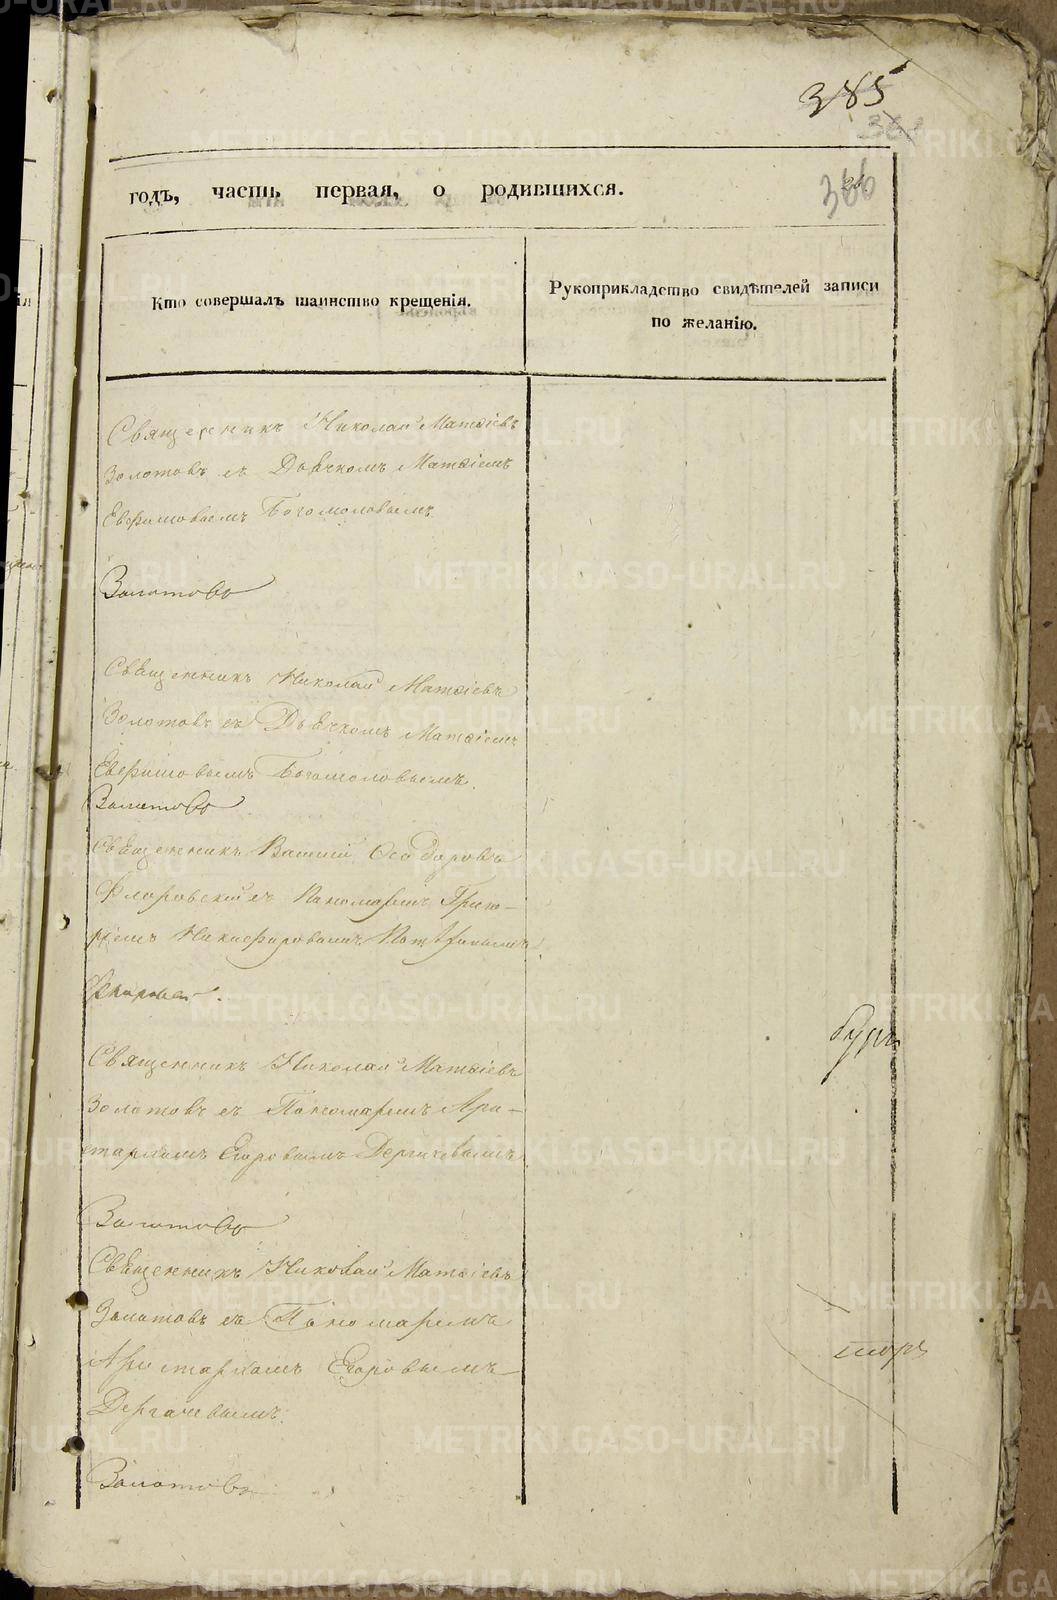 385
366
годъ, часть первая, о родившихся.
Кто совершалъ таинство крещенія.
Рукоприкладство свидѣтелей записи
по желанію.
Священникъ Николай Матѳіевъ
Золотовъ съ Дьячкомъ Матѳіемъ
Евѳимовымъ Богомоловымъ
Золотовъ
Священникъ Николай Матѳіевъ
Золотовъ съ Дьячкомъ Матѳіемъ
Евѳимовымъ Богомоловымъ.
Золотовъ
Священникъ Василій Ѳеодоровъ
Флоровскій съ Пономаремъ Григо-
ріемъ Никифоровымъ
Священникъ Николай Матѳіевъ
Золотовъ съ Пономаремъ Ари-
стархомъ Егоровымъ Дергачевымъ
Золотовъ
Священникъ Николай Матѳіевъ
Золотовъ съ Пономаремъ
Аристархомъ Егоровымъ
Дергачевымъ.
Золотовъ
METRIKI.GASO-URAL.RU